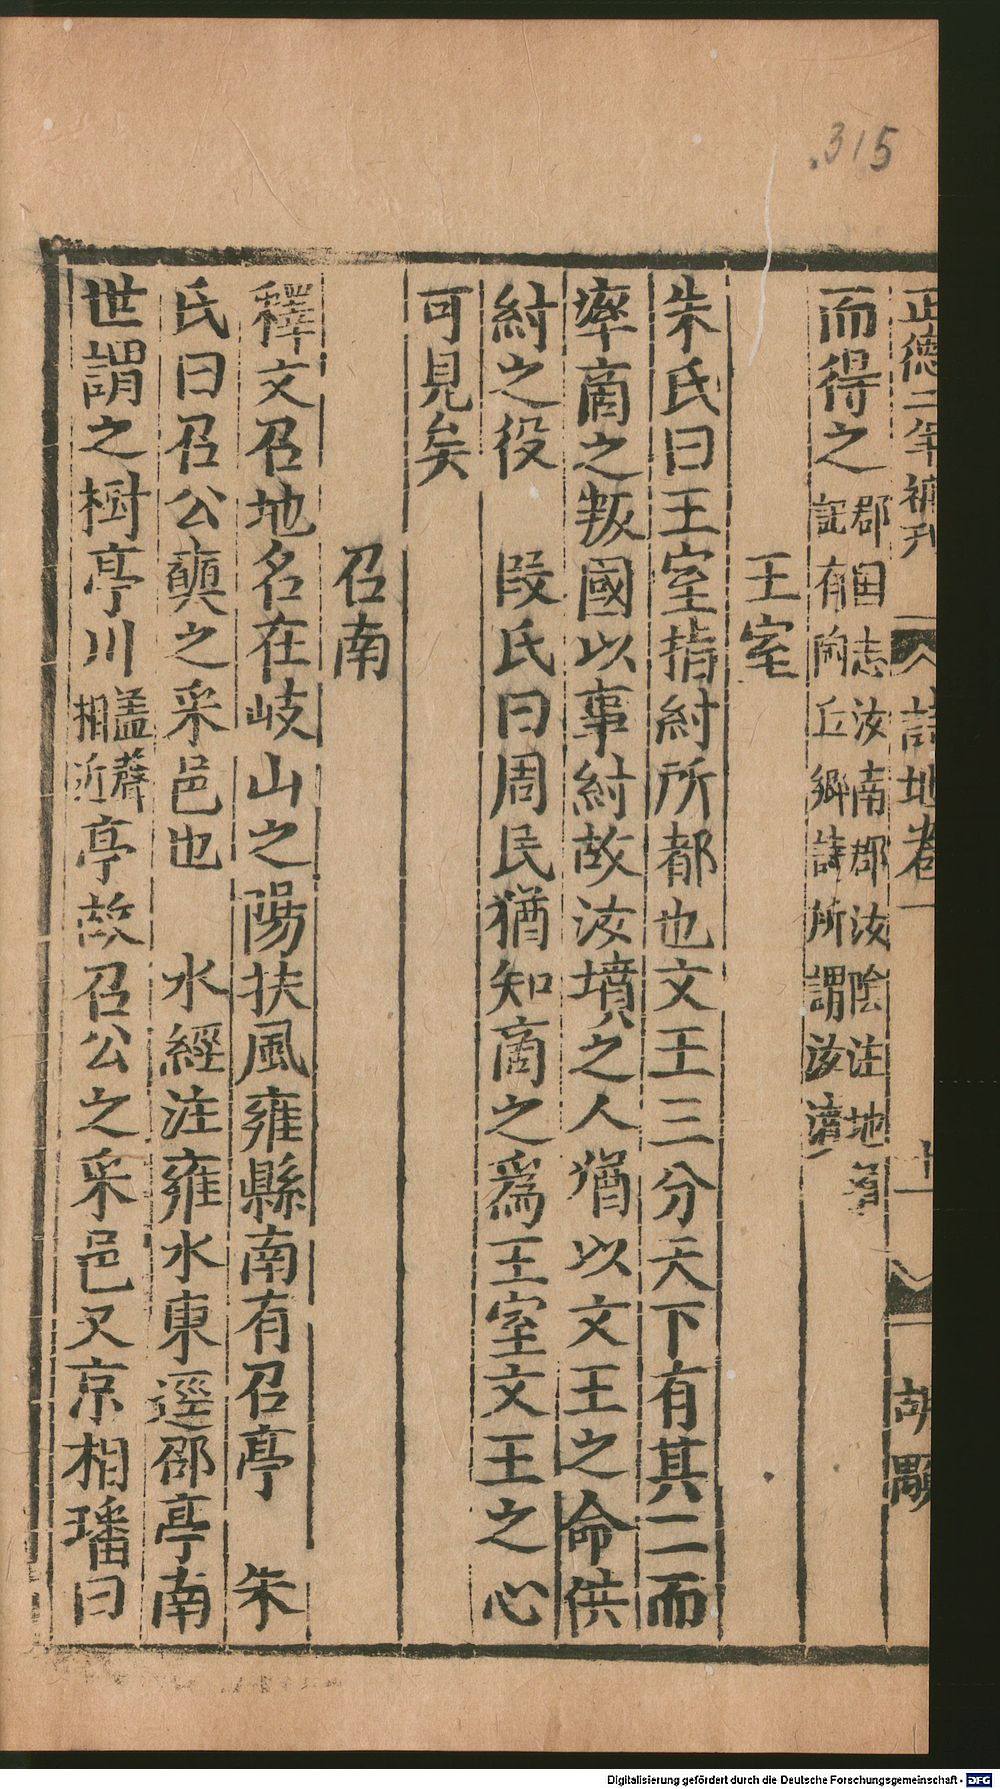 .315
正德二年補刊 詩地卷一 十一 胡顒
而得之郡国志汝南郡汝陰注地道記有陶丘鄉詩所謂汝墳
王室
朱氏曰王室指紂所都也文王三分天下有其二而
率商之叛國以事紂故汝墳之人猶以文王之命供
紂之役 段氏曰周民猶知商之爲王室文王之心
可見矣
召南
釋文召地名在岐山之陽扶風雍縣南有召亭 朱
氏曰召公奭之采邑也 水經注雍水東逕邵亭南
世謂之樹亭川盖聲相近亭故召公之采邑又京相璠曰
Digitalisierung gefördert durch die Deutsche Forschungsgemeinschaft - DFG